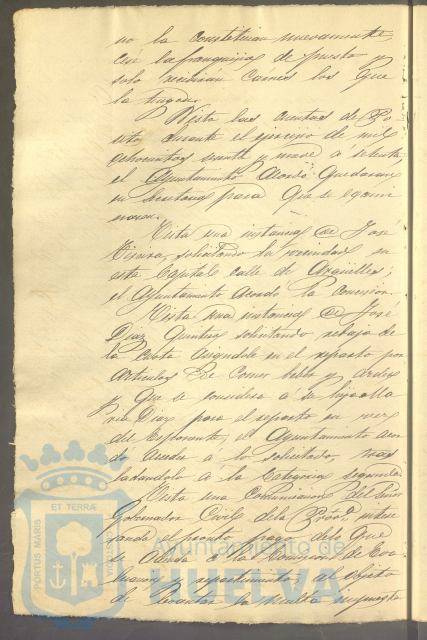 no la constituian nuevamente
con la franquicia de puesto y
solo recibirán carnes los que
la tengan.
Vista las cuentas de Po
sito, durante el ejercicio de mil
ochocientos sesenta y nueve á setenta
el Ayuntamiento acordó quedaran
en Secretaria para que se exami
nasen.
Vista una instancia de José
solicitando la vecindad en
esta Capital calle de Argüelles;
el Ayuntamiento acordó la concesion.
Vista una instancia de José
Diaz Quintero solicitando rebaja de
la cuota en el reparto por
articulos de comer beber y arder
y que se considere á su hija Ma
ria Diaz para el reparto en vez
del Esponente, el Ayuntamiento acor
dó acceder á lo solicitado, tras
ladandolo á la categoria segunda
Vista una Comunicacion del Señor
Gobernador Civil de la Prov.ª intere
sando el pronto pago de lo que
se adeuda á la Comision de Eva
luacion y repartimiento al objeto
de levantar la multa impuesta
PORTUS MARIS
ET TERRÆ
CUSTODIA
Ayuntamiento de
HUELVA